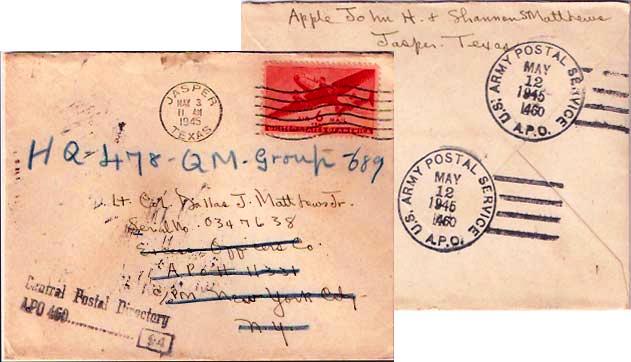 JASPER
MAY 3
11 AM
1945
TEXAS
6
UNITED STATES OF AMERICA
HQ-478-QM-Group-689
Lt. Col Dallas J. Matthews Jr.
Serial No. 0347638
Officers Co.
A.P.O. # 11331
c/o P.M. New York City
N.Y.
Central Postal Directory
APO 460
Apple John H. + Shannon Matthews
Jasper. Texas
U.S. ARMY POSTAL SERVICE
MAY
12
1945
460
A.P.O.
U.S. ARMY POSTAL SERVICE
MAY
12
1945
460
A.P.O.